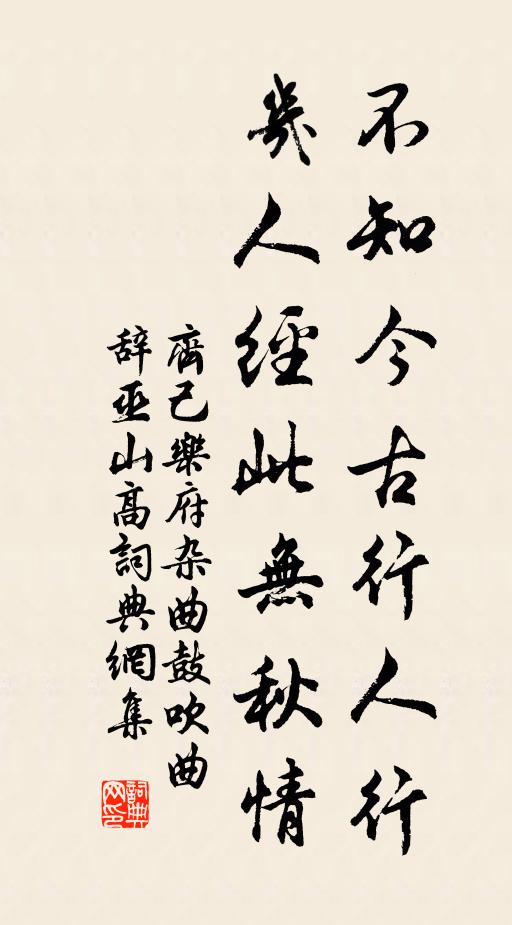 不知今古行人行
幾人經此無秋情
齊己樂府杂曲鼓吹曲
辞巫山高詞典網集
詞典网印